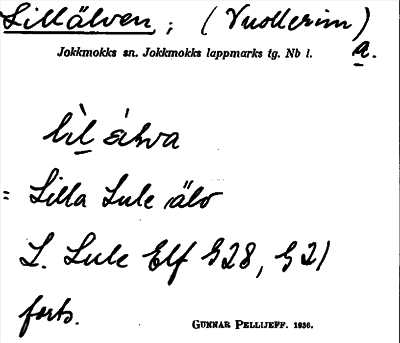 Lillälven ; (Vuollerim)
Jokkmokks sn. Jokkmokks lappmarks tg. Nb l. a.
lìl álva
= Lilla Lule älv
L. Lule Elf G28, G21
forts.
GUNNAR PELLIJEFF. 1936.